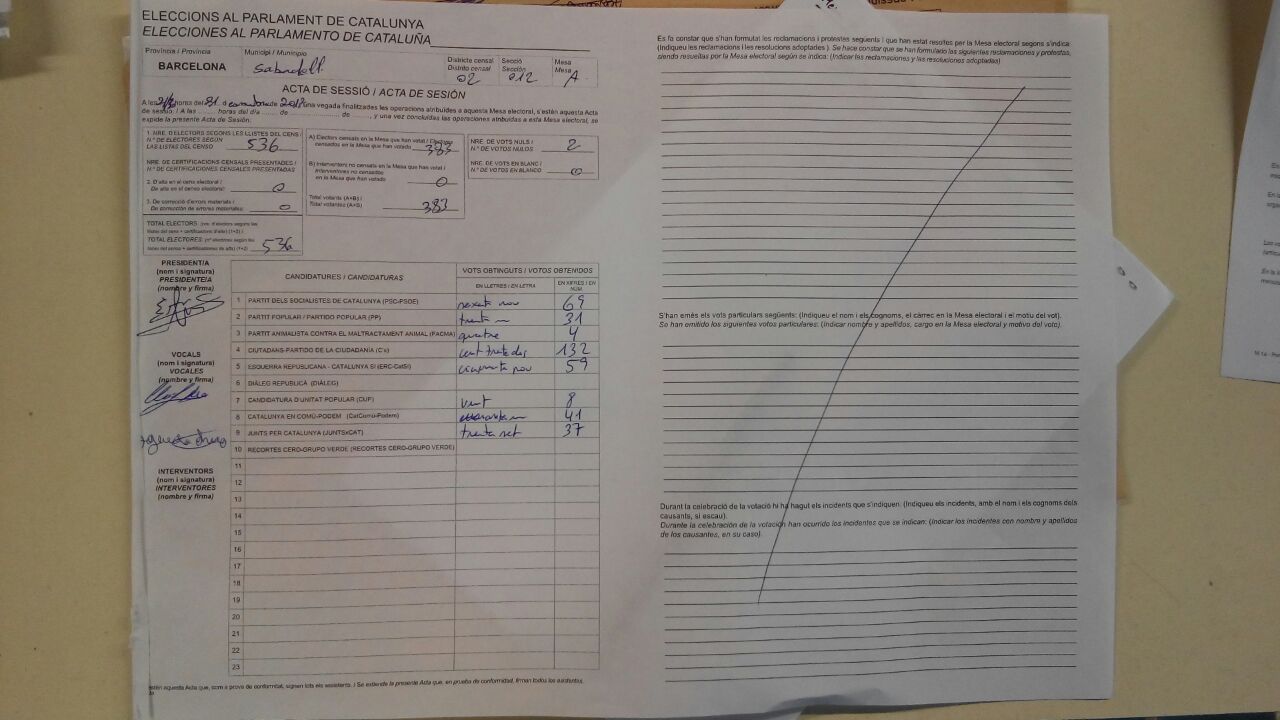 ELECCIONS AL PARLAMENT DE CATALUNYA
ELECCIONES AL PARLAMENTO DE CATALUÑA
Província / Provincia
BARCELONA
Municipi / Municipio
Sabadell
Districte censal
Distrito censal
02
Secció
Sección
012
Mesa
Mesa
A
ACTA DE SESSIÓ / ACTA DE SESIÓN
A les hores del 21 d de 2017 una vegada finalitzades les operacions atribuïdes a aquesta Mesa electoral, s'estén aquesta Acta
de sessió. / A las ........ horas del día ........ de ........ de ........, y una vez concluidas las operaciones atribuidas a esta Mesa electoral, se
expide la presente Acta de Sesión:
1. NRE. D'ELECTORS SEGONS LES LLISTES DEL CENS /
N.º DE ELECTORES SEGÚN
LAS LISTAS DEL CENSO
536
NRE. DE CERTIFICACIONS CENSALS PRESENTADES /
N.º DE CERTIFICACIONES CENSALES PRESENTADAS
2. D'alta en el cens electoral /
De alta en el censo electoral:
0
3. De correcció d'errors materials /
De corrección de errores materiales:
0
TOTAL ELECTORS: (nre. d'electors segons les
llistes del cens + certificacions d'alta) (1+2) /
TOTAL ELECTORES: (nº electores según las
listas del censo + certificaciones de alta) (1+2)
536
A) Electors censats en la Mesa que han votat / Electores
censados en la Mesa que han votado
383
B) Interventors no censats en la Mesa que han votat /
Interventores no censados
en la Mesa que han votado
0
Total votants (A+B) /
Total votantes (A+B)
383
NRE. DE VOTS NULS /
N.º DE VOTOS NULOS
2
NRE. DE VOTS EN BLANC /
N.º DE VOTOS EN BLANCO
0
PRESIDENT/A
(nom i signatura)
PRESIDENTE/A
(nombre y firma)
VOCALS
(nom i signatura)
VOCALES
(nombre y firma)
INTERVENTORS
(nom i signatura)
INTERVENTORES
(nombre y firma)
CANDIDATURES / CANDIDATURAS
VOTS OBTINGUTS / VOTOS OBTENIDOS
EN LLETRES / EN LETRA
EN XIFRES / EN NÚM.
1 PARTIT DELS SOCIALISTES DE CATALUNYA (PSC-PSOE) seixanta nou 69
2 PARTIT POPULAR / PARTIDO POPULAR (PP) trenta un 31
3 PARTIT ANIMALISTA CONTRA EL MALTRACTAMENT ANIMAL (PACMA) quatre 4
4 CIUTADANS-PARTIDO DE LA CIUDADANÍA (C's) cent trenta dos 132
5 ESQUERRA REPUBLICANA - CATALUNYA SÍ (ERC-CatSí) cinquanta nou 59
6 DIÀLEG REPUBLICÀ (DIÀLEG)
7 CANDIDATURA D'UNITAT POPULAR (CUP) vuit 8
8 CATALUNYA EN COMÚ-PODEM (CatComú-Podem) quaranta un 41
9 JUNTS PER CATALUNYA (JUNTSxCAT) trenta set 37
10 RECORTES CERO-GRUPO VERDE (RECORTES CERO-GRUPO VERDE)
11
12
13
14
15
16
17
18
19
20
21
22
23
estén aquesta Acta que, com a prova de conformitat, signen tots els assistents. / Se extiende la presente Acta que, en prueba de conformidad, firman todos los asistentes.
Es fa constar que s'han formulat les reclamacions i protestes següents i que han estat resoltes per la Mesa electoral segons s'indica:
(Indiqueu les reclamacions i les resolucions adoptades ). Se hace constar que se han formulado las siguientes reclamaciones y protestas,
siendo resueltas por la Mesa electoral según se indica: (Indicar las reclamaciones y las resoluciones adoptadas)
S'han emès els vots particulars següents: (Indiqueu el nom i els cognoms, el càrrec en la Mesa electoral i el motiu del vot).
Se han emitido los siguientes votos particulares: (Indicar nombre y apellidos, cargo en la Mesa electoral y motivo del voto).
Durant la celebració de la votació hi ha hagut els incidents que s'indiquen: (Indiqueu els incidents, amb el nom i els cognoms dels
causants, si escau).
Durante la celebración de la votación han ocurrido los incidentes que se indican: (Indicar los incidentes con nombre y apellidos
de los causantes, en su caso).